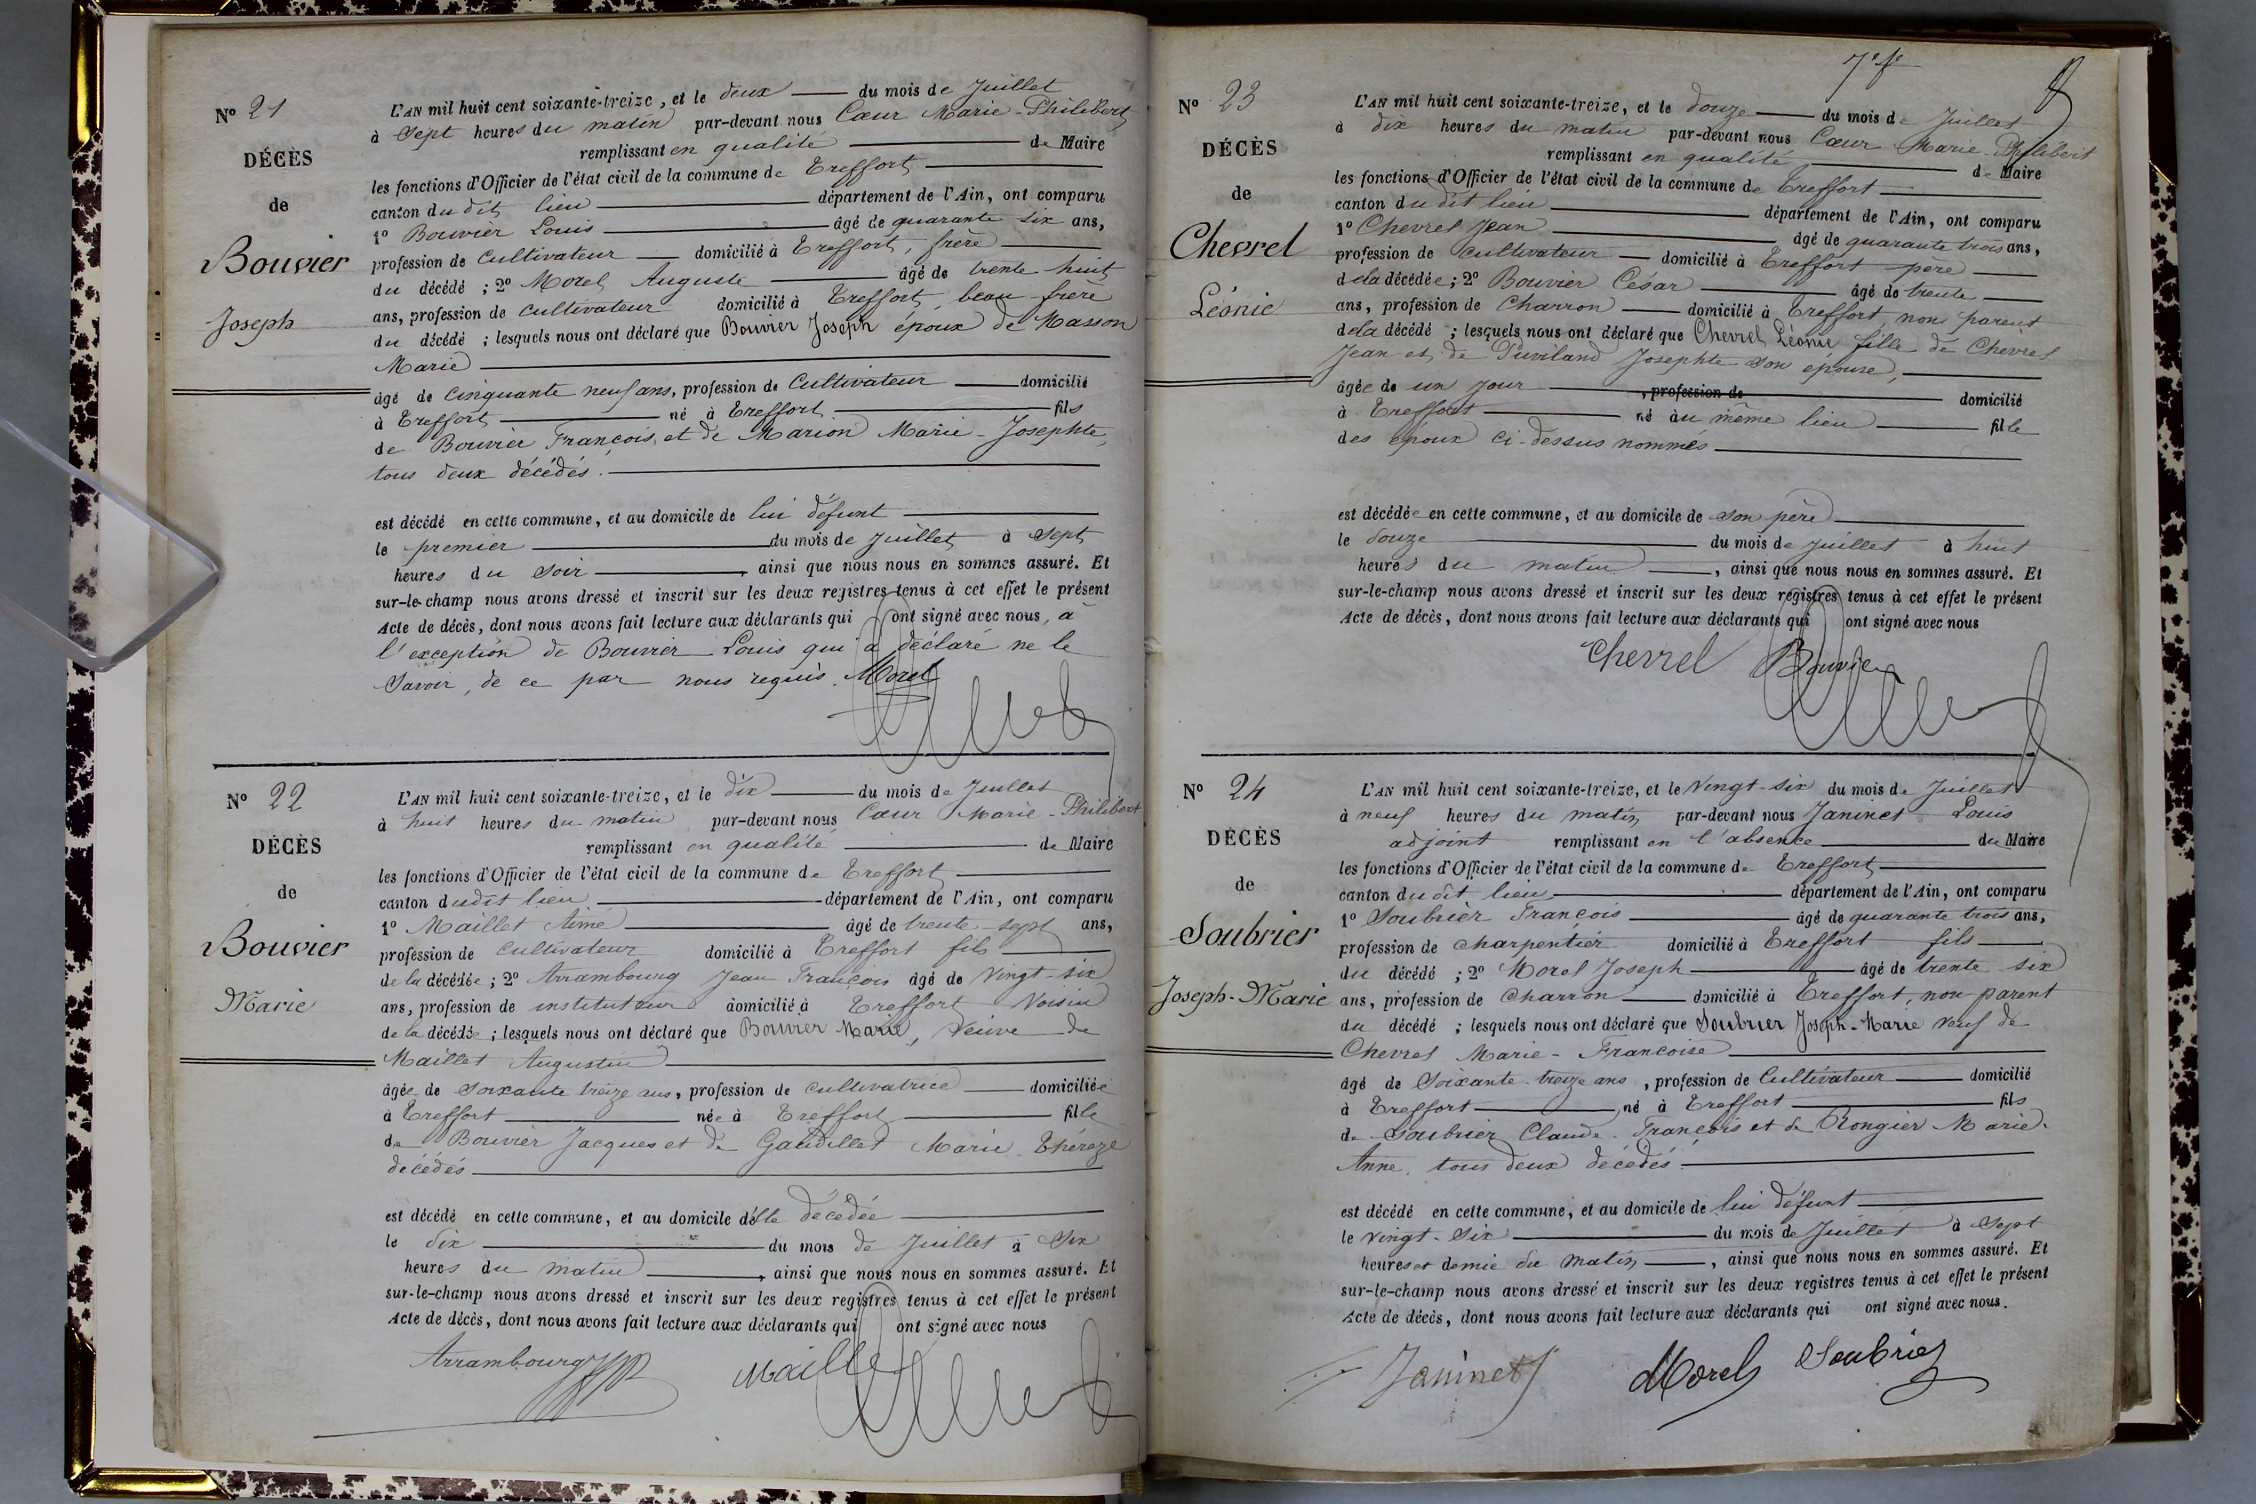 N° 21
DÉCÈS
de
Bouvier
Joseph
L'AN mil huit cent soixante-treize, et le deux du mois de Juillet
à sept heures du matin par-devant nous Cœur Marie-Philibert
remplissant en qualité de Maire
les fonctions d'Officier de l'état civil de la commune de Treffort
canton du dit lieu département de l'Ain, ont comparu
1° Bouvier Louis âgé de quarante six ans,
profession de cultivateur domicilié à Treffort, frère
du décédé ; 2° Morel Auguste âgé de trente-huit
ans, profession de cultivateur domicilié à Treffort, beau-frère
du décédé ; lesquels nous ont déclaré que Bouvier Joseph époux de Masson
Marie
âgé de cinquante neuf ans, profession de Cultivateur domicilié
à Treffort né à Treffort fils
de Bouvier François et de Marion Marie-Josephte,
tous deux décédés.
est décédé en cette commune, et au domicile de lui défunt
le premier du mois de Juillet à sept
heures du soir, ainsi que nous nous en sommes assuré. Et
sur-le-champ nous avons dressé et inscrit sur les deux registres tenus à cet effet le présent
Acte de décès, dont nous avons fait lecture aux déclarants qui ont signé avec nous, à
l'exception de Bouvier Louis qui a déclaré ne le
savoir, de ce par nous requis. Morel
N° 22
DÉCÈS
de
Bouvier
Marie
L'AN mil huit cent soixante-treize, et le dix du mois de Juillet
à huit heures du matin par-devant nous Cœur Marie-Philibert
remplissant en qualité de Maire
les fonctions d'Officier de l'état civil de la commune de Treffort
canton dudit lieu département de l'Ain, ont comparu
1° Maillet Aimé âgé de trente-sept ans,
profession de cultivateur domicilié à Treffort fils
de la décédée ; 2° Arrambourg Jean François âgé de vingt-six
ans, profession de instituteur domicilié à Treffort Voisin
de la décédée ; lesquels nous ont déclaré que Bouvier Marie, Veuve de
Maillet Augustin
âgée de soixante treize ans, profession de cultivatrice domiciliée
à Treffort née à Treffort fille
de Bouvier Jacques et de Gaudillet Marie Thérèze
décédés
est décédé en cette commune, et au domicile d'elle décédée
le dix du mois de Juillet à six
heures du matin, ainsi que nous nous en sommes assuré. Et
sur-le-champ nous avons dressé et inscrit sur les deux registres tenus à cet effet le présent
Acte de décès, dont nous avons fait lecture aux déclarants qui ont signé avec nous
Arrambourg Maillet
N° 23
DÉCÈS
de
Chevrel
Léonie
L'AN mil huit cent soixante-treize, et le douze du mois de Juillet
à dix heures du matin par-devant nous Cœur Marie-Philibert
remplissant en qualité de Maire
les fonctions d'Officier de l'état civil de la commune de Treffort
canton du dit lieu département de l'Ain, ont comparu
1° Chevrel Jean âgé de quarante trois ans,
profession de cultivateur domicilié à Treffort père
de la décédée ; 2° Bouvier César âgé de trente
ans, profession de Charron domicilié à Treffort non parent
de la décédé ; lesquels nous ont déclaré que Chevrel Léonie fille de Chevrel
Jean et de Puviland Josephte son épouse,
âgée de un jour, profession de domicilié
à Treffort né au même lieu fille
des époux ci-dessus nommés
est décédée en cette commune, et au domicile de son père
le douze du mois de Juillet à huit
heures du matin, ainsi que nous nous en sommes assuré. Et
sur-le-champ nous avons dressé et inscrit sur les deux registres tenus à cet effet le présent
Acte de décès, dont nous avons fait lecture aux déclarants qui ont signé avec nous
Chevrel Bouvier
N° 24
DÉCÈS
de
Soubrier
Joseph-Marie
L'AN mil huit cent soixante-treize, et le vingt-six du mois de Juillet
à neuf heures du matin par-devant nous Janinet Louis
adjoint remplissant en l'absence du Maire
les fonctions d'Officier de l'état civil de la commune de Treffort
canton du dit lieu département de l'Ain, ont comparu
1° Soubrier François âgé de quarante trois ans,
profession de charpentier domicilié à Treffort fils
du décédé ; 2° Morel Joseph âgé de trente six
ans, profession de charron domicilié à Treffort, non parent
du décédé ; lesquels nous ont déclaré que Soubrier Joseph-Marie veuf de
Chevrel Marie-Francoise
âgé de soixante-treize ans, profession de Cultivateur domicilié
à Treffort né à Treffort fils
de Soubrier Claude-François et de Rongier Marie-
Anne, tous deux décédés
est décédé en cette commune, et au domicile de lui défunt
le vingt-six du mois de Juillet à sept
heures et demie du matin, ainsi que nous nous en sommes assuré. Et
sur-le-champ nous avons dressé et inscrit sur les deux registres tenus à cet effet le présent
Acte de décès, dont nous avons fait lecture aux déclarants qui ont signé avec nous.
Janinet Morel Soubrier